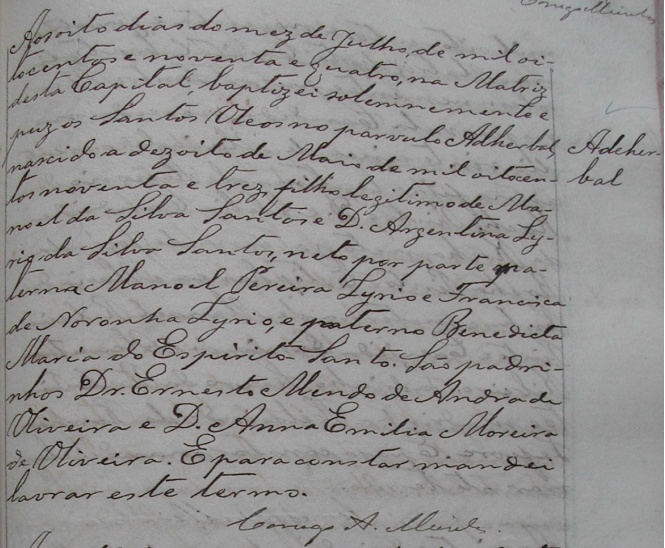 Conego Mendes
Aos oito dias do mez de Julho, de mil oi-
tocentos e noventa e quatro, na Matriz
desta Capital, baptizei solemnemente e
puz os Santos Oleos no parvulo Adherbal,
Adeher-
bal
nascido a dezoito de Maio de mil oitocen-
tos noventa e trez, filho legitimo de Ma-
noel da Silva Santos e D. Argentina Ly-
rio da Silva Santos, neto por parte ma-
terna Manoel Pereira Lyrio e Francisca
de Noronha Lyrio, e paterno Benedicta
Maria do Espirito Santo. São padri-
nhos Dr. Ernesto Mendo de Andrade
Oliveira e D. Anna Emilia Moreira
de Oliveira. E para constar mandei
lavrar este termo.
Conego A.